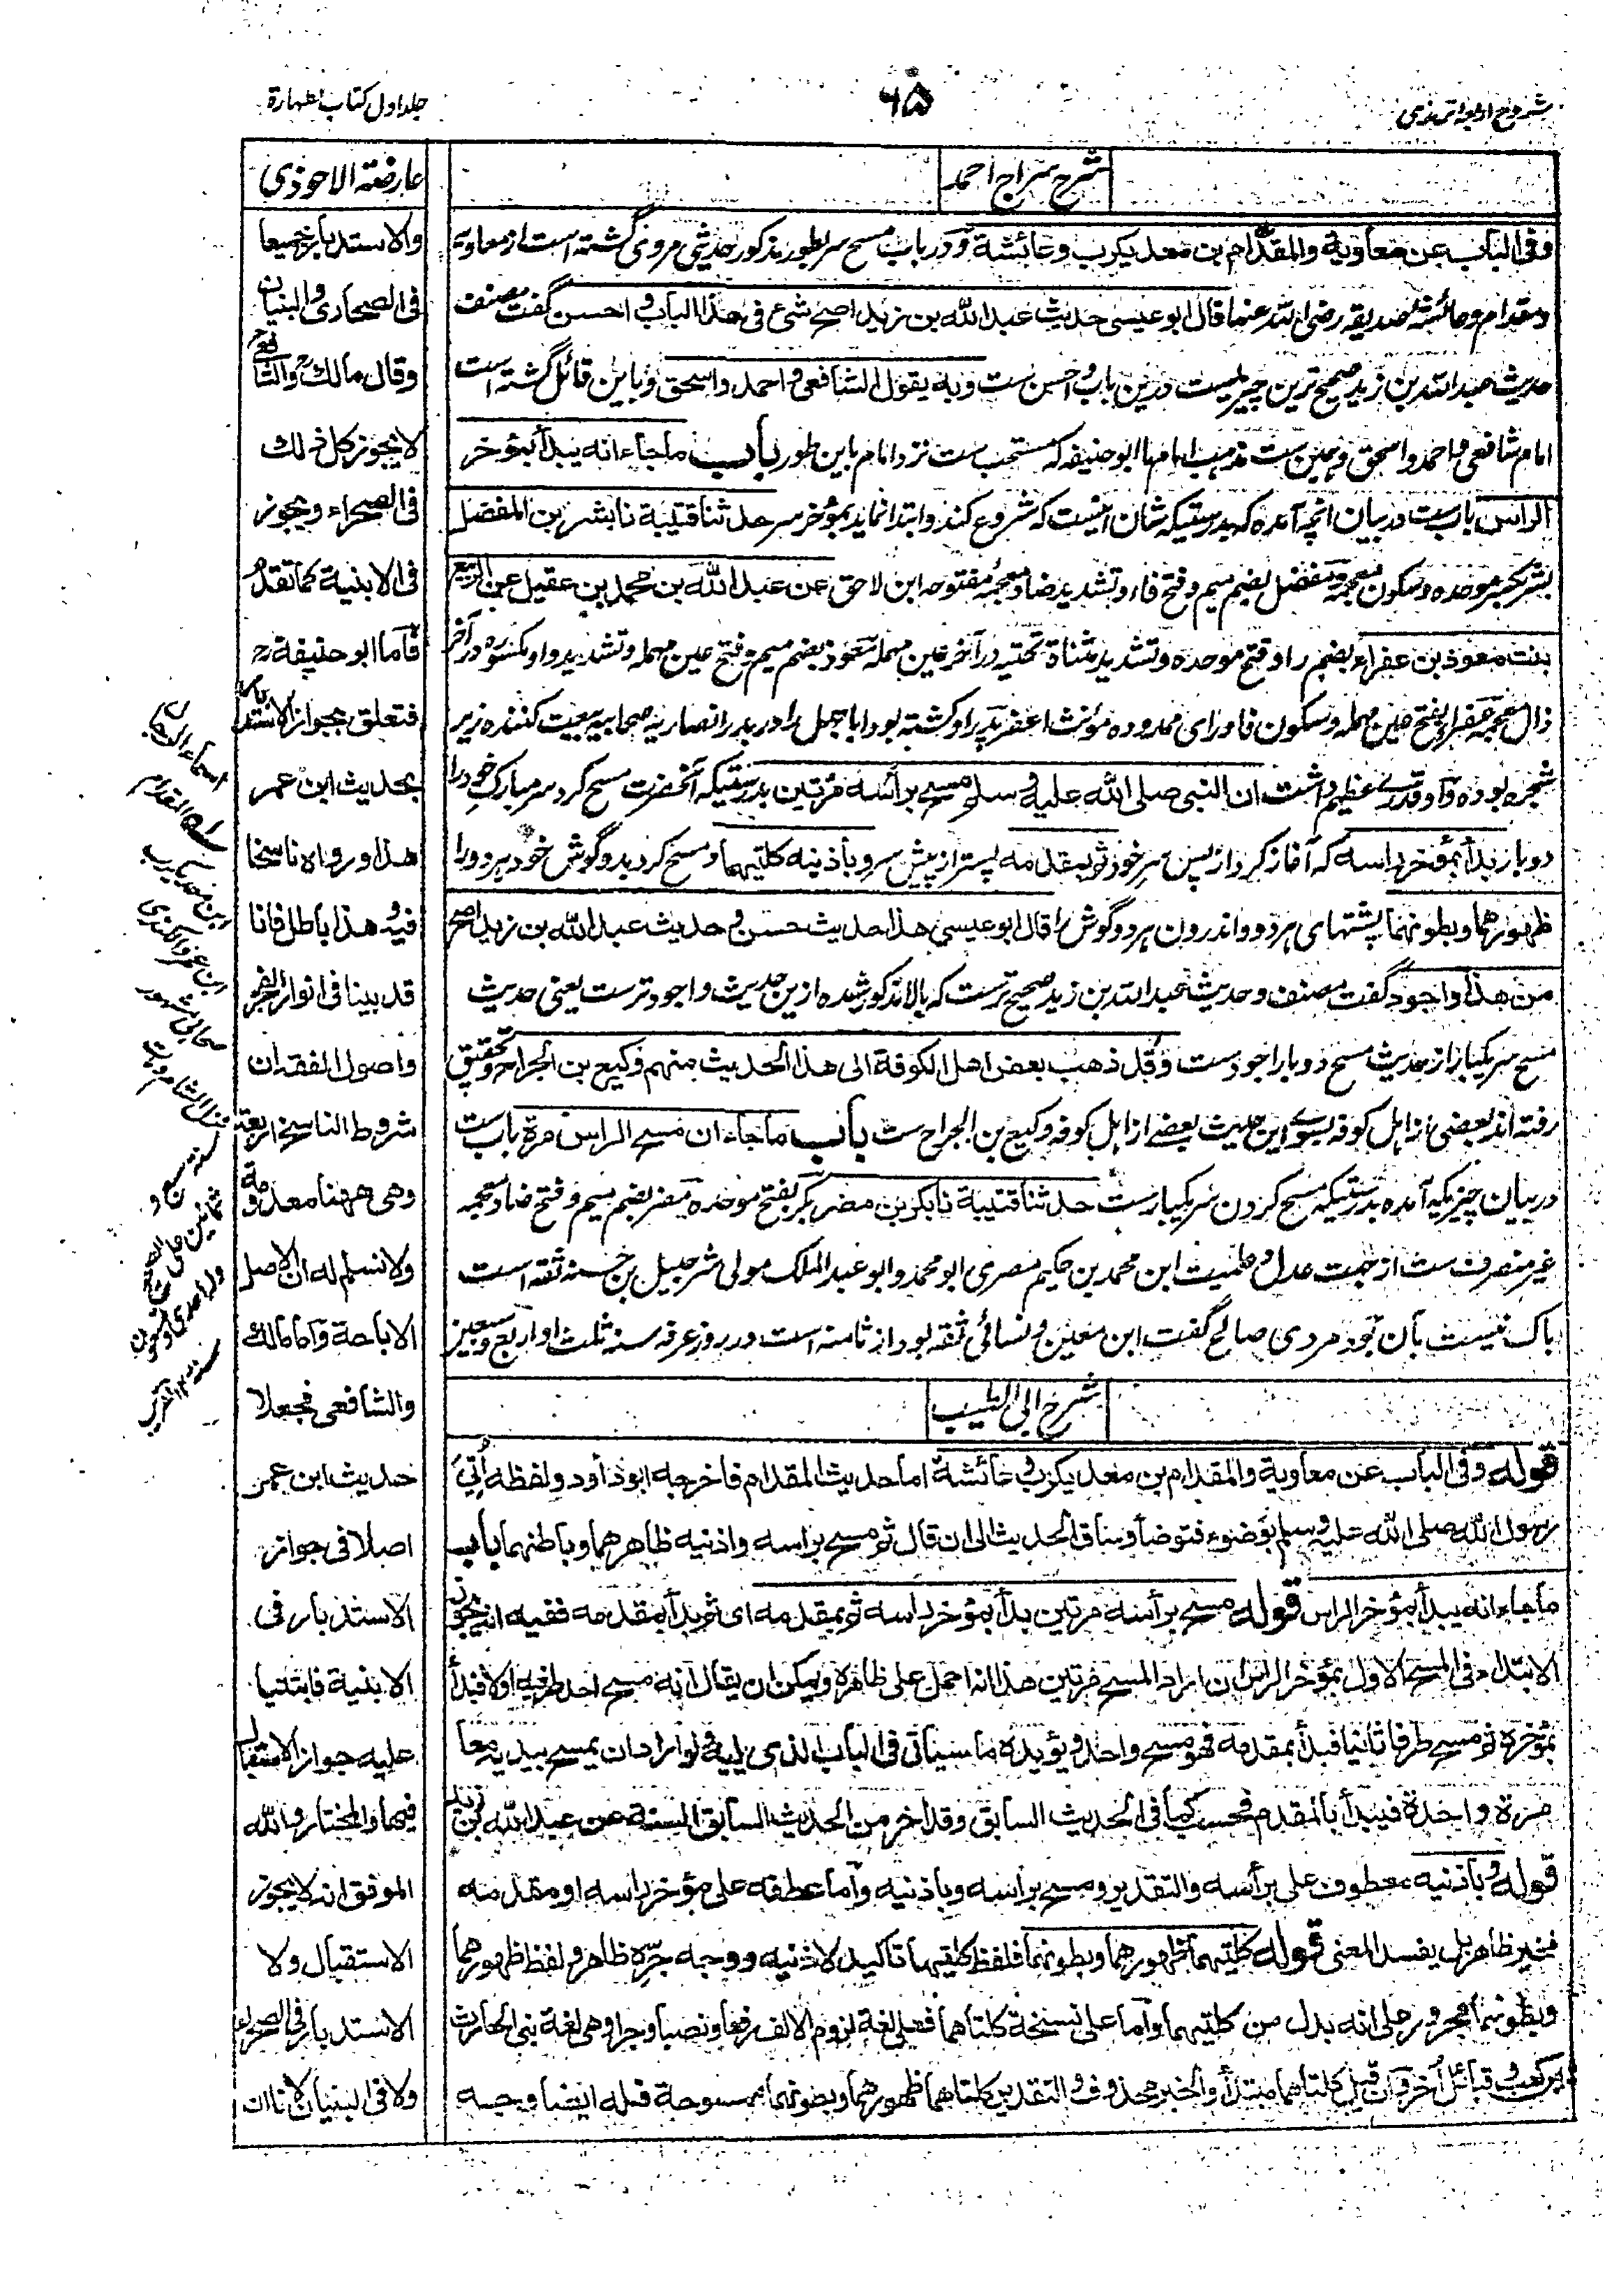 شروح اربعه ترمذی
۶۵
جلد اول کتاب الطهارة
شرح سراج احمد
وفی الباب عن معاویة والمقدام بن معدیکرب وعائشة و در باب مسح سر بطور مذکور حدیثی مروی گشته است از معاویه
و مقدام و عائشه صدیقه رضی الله عنها قال ابو عیسی حدیث عبد الله بن زید اصح شیء فی هذا الباب و احسن گفت مصنف
حدیث عبد الله بن زید صحیح ترین چیزیست درین باب و احسن ست و به یقول الشافعی و احمد و اسحق و باین قائل گشته است
امام شافعی و احمد و اسحق و همین ست مذهب امام ما ابو حنیفه که مستحب ست نزد امام باین طور باب ما جاء انه یبدأ بمؤخر
الراس باب ست در بیان انچه آمده که بدرستیکه شان اینست که شروع کند و ابتدا نماید بمؤخر سر حدثنا قتیبة نا بشر بن المفضل
بشر بکسر موحده و سکون معجمه و مفضل بضم میم و فتح فاء و تشدید ضاد معجمه مفتوحه ابن لاحق عن عبد الله بن محمد بن عقیل عن الربیع
بنت معوذ بن عفراء بضم را و فتح موحده و تشدید مثناة تحتیه در آخر عین مهمله معوذ بضم میم و فتح عین مهمله و تشدید واو مکسوره در آخر
ذال معجمه عفراء بفتح عین مهمله و سکون فا و رای ممدوده مؤنث اعفر پدر او کشته بود ابا جهل را در بدر انصاریه صحابیه بیعت کننده زیر
شجره بوده و او قدرے عظیم داشت ان النبی صلی الله علیه و سلم مسح برأسه مرتین بدرستیکه آنحضرت مسح کرد سر مبارک خود را
دو بار بدأ بمؤخر راسه که آغاز کرد از پس سر خود ثم بمقدمه پستر از پیش سر و باذنیه کلتیهما و مسح کرد بدو گوش خود هر دو را
ظهورهما وبطونهما پشتهای هر دو و اندرون هر دو گوش را قال ابو عیسی هذا حدیث حسن و حدیث عبد الله بن زید اصح
من هذا و اجود گفت مصنف و حدیث عبد الله بن زید صحیح ترست که بالا مذکور شده ازین حدیث و اجود ترست یعنی حدیث
مسح سر یکبار از حدیث مسح دو بار اجودست و قد ذهب بعض اهل الکوفة الی هذا الحدیث منهم وکیع بن الجراح و تحقیق
رفته اند بعضی از اهل کوفه بسوے این حدیث بعضے از اهل کوفه وکیع بن الجراح ست باب ما جاء ان مسح الراس مرة باب ست
در بیان چیزیکه آمده بدرستیکه مسح کردن سر یکبارست حدثنا قتیبة نا بکر بن مضر بکر بفتح موحده مضر بضم میم و فتح ضاد معجمه
غیر منصرف ست از جهت عدل و علمیت ابن محمد بن حکیم مصری ابو محمد و ابو عبد الملک مولی شرحبیل بن حسنه ثقه است
باک نیست بآن بود مردی صالح گفت ابن معین و نسائی ثقه بود از ثامنه است در روز عرفه سنه ثلث او اربع و سبعین
شرح ابی الطیب
قوله وفی الباب عن معاویة والمقدام بن معدیکرب و عائشة اما حدیث المقدام فاخرجه ابو داود ولفظه أتی
رسول الله صلی الله علیه وسلم بوضوء فتوضأ وساق الحدیث الی ان قال ثم مسح براسه واذنیه ظاهرهما وباطنهما باب
ما جاء انه یبدأ بمؤخر الراس قوله مسح برأسه مرتین بدأ بمؤخر راسه ثم بمقدمه ای ثم بدأ بمقدمه ففیه انه یجوز
الابتداء فی المسح الاول بمؤخر الراس ان اراد المسح مرتین هذا انه احمل علی ظاهره ویمکن ان یقال انه مسح احد طرفیه اولا فبدأ
بمؤخره ثم مسح طرفا ثانیا فبدأ بمقدمه فهو مسح واحد ویؤیده ما سیأتی فی الباب الذی یلیه ولو اراد ان یمسح بیدیه معا
مرة واحدة فیبدأ بالمقدم فحسب کما فی الحدیث السابق وقد اخرج الحدیث السابق الستة عن عبد الله بن زید
قوله وباذنیه معطوف علی برأسه والتقدیر ومسح برأسه وباذنیه واما عطفه علی مؤخر راسه او مقدمه
فغیر ظاهر بل یفسد المعنی قوله کلتیهما ظهورهما وبطونهما فلفظ کلتیهما تاکید لاذنیه ووجه جره ظاهر ولفظ ظهورهما
وبطونهما مجرور علی انه بدل من کلتیهما واما علی نسخة کلتاهما فعلی لغة لزوم الالف رفعا ونصبا وجرا وهی لغة بنی الحارث
بن کعب و قبائل أخر وان قیل کلتاهما مبتدأ والخبر محذوف والتقدیر کلتاهما ظهورهما وبطونهما ممسوحة فله ایضا وجه
عارضة الاحوذی
والاستدبار جمیعا
فی الصحاری والبنیان
وقال مالک والشافعی
لا یجوز کل ذلک
فی الصحراء ویجوز
فی الابنیة کما تقدم
فاما ابو حنیفة رح
فتعلق بجواز الاستدبار
بحدیث ابن عمر
هذا ورواه ناسخا
فیه وهذا باطل فانا
قد بینا فی انوار الفجر
واصول الفقه ان
شروط الناسخ اربعة
وهی ههنا معدومة
ولا نسلم له ان الاصل
الاباحة واما مالک
والشافعی فجعلا
حدیث ابن عمر
اصلا فی جواز
الاستدبار فی
الابنیة فابتنیا
علیه جواز الاستقبال
فیها والمختار والله
الموفق انه لا یجوز
الاستقبال ولا
الاستدبار فی الصحراء
ولا فی البنیان لانا ان
اسماء الرجال
المقدام
بن معدیکرب
ابن عمرو الکندی
صحابی مشهور
نزل الشام ومات
سنة سبع و
ثمانین علی الصحیح
وله احدی وتسعون
سنة